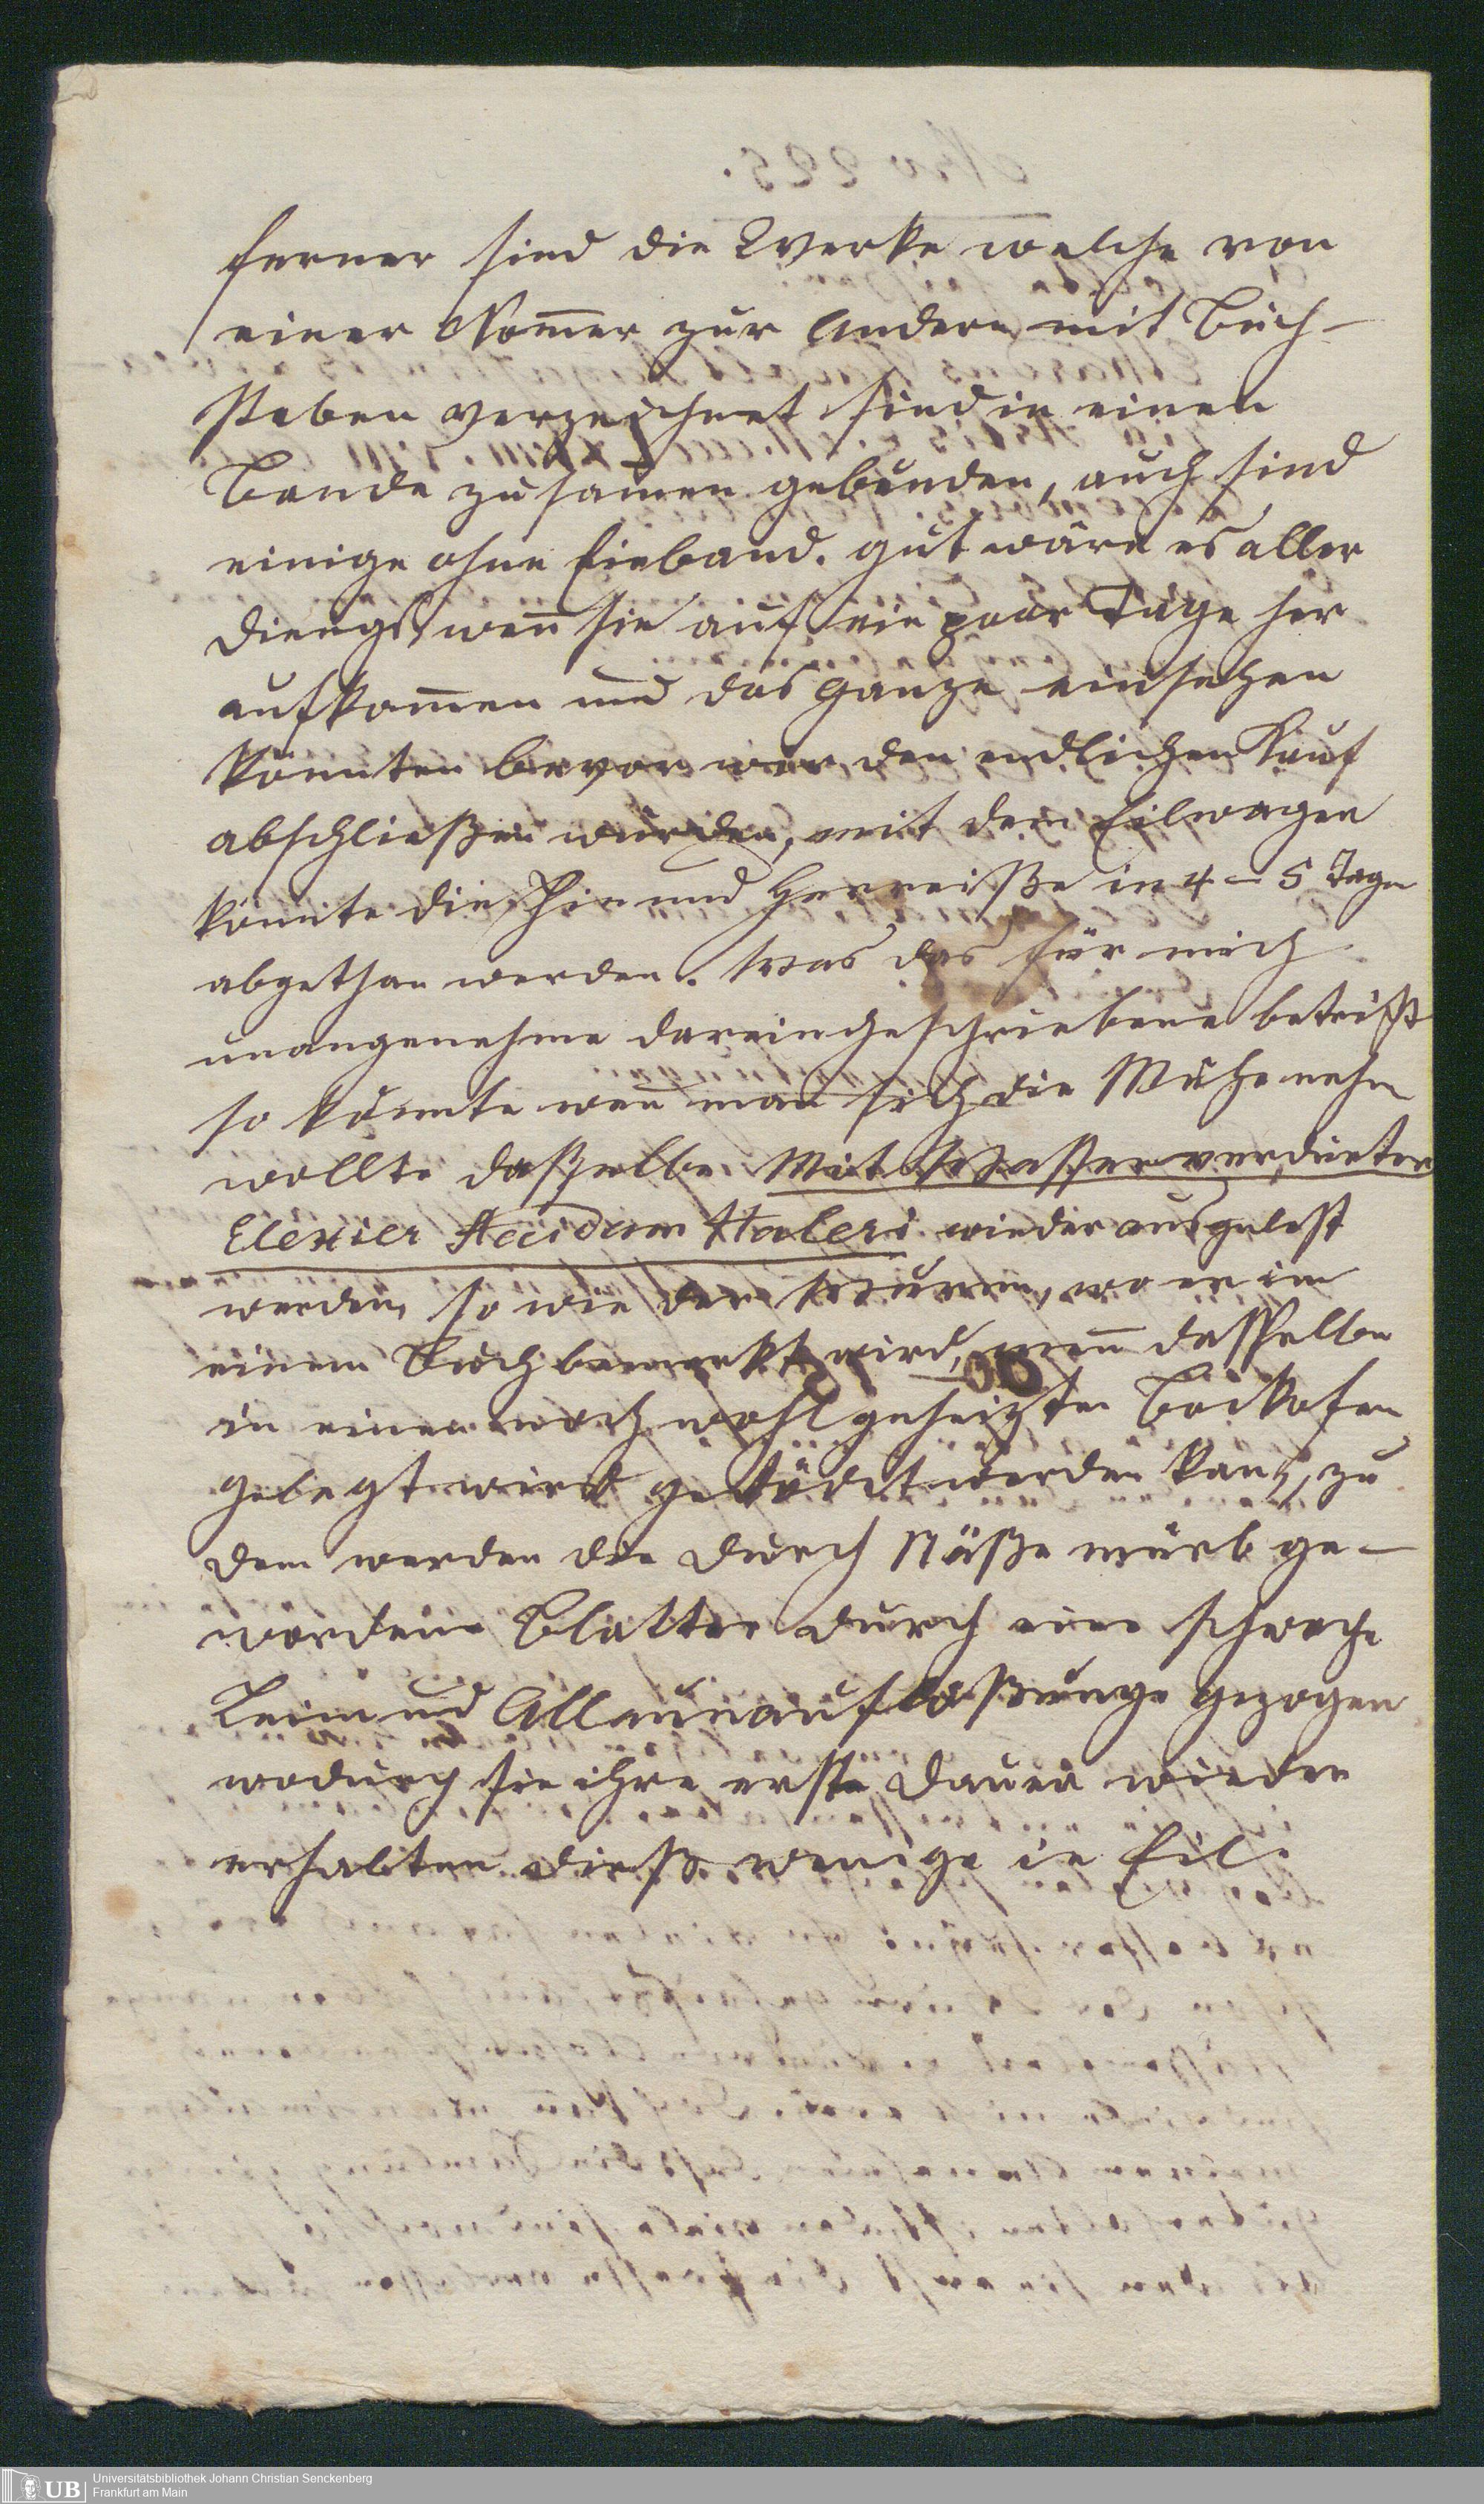 ferner sind die Werke welche von
einer Nom̄er zur Andern mit Buch-
staben verzeichnet sind in einen
Bande zusam̄en gebunden, auch sind
einige ohne Einband. gut wäre es aller
diengs, wen̄ sie auf ein paar Tage her
aufkom̄en und das ganze einsehen
könnten bevor wir den endlichen Kauf
abschließen würden, mit dem Eilwagen
könnte die Hin und Herreiße in 4 – 5 Tage
abgethan werden. Was das für mich
unangenehme dareingeschriebene betrifft
so könnte wen̄ man sich die Mühe nehm
wollte daßelbe Mit Wasser verdünter
Elexier Accidum Haleri wieder ausgelest
werden, so wie der Wurm, wo er im
einem Buch bemerkt wird, wen̄ dasselbe
in einen noch wohl geheizten Backofen
gelegt wird getödtet werden kan̄, zu
dem werden die durch Näße mürb ge-
wordene Blätter durch eine schwache
Leim und Allaunauflößunge gezogen
wodurch sie ihre erste Dauer wieder
erhalten. dieß wenige in Eil.
Universitätsbibliothek Johann Christian Senckenberg
Frankfurt am Main
UB